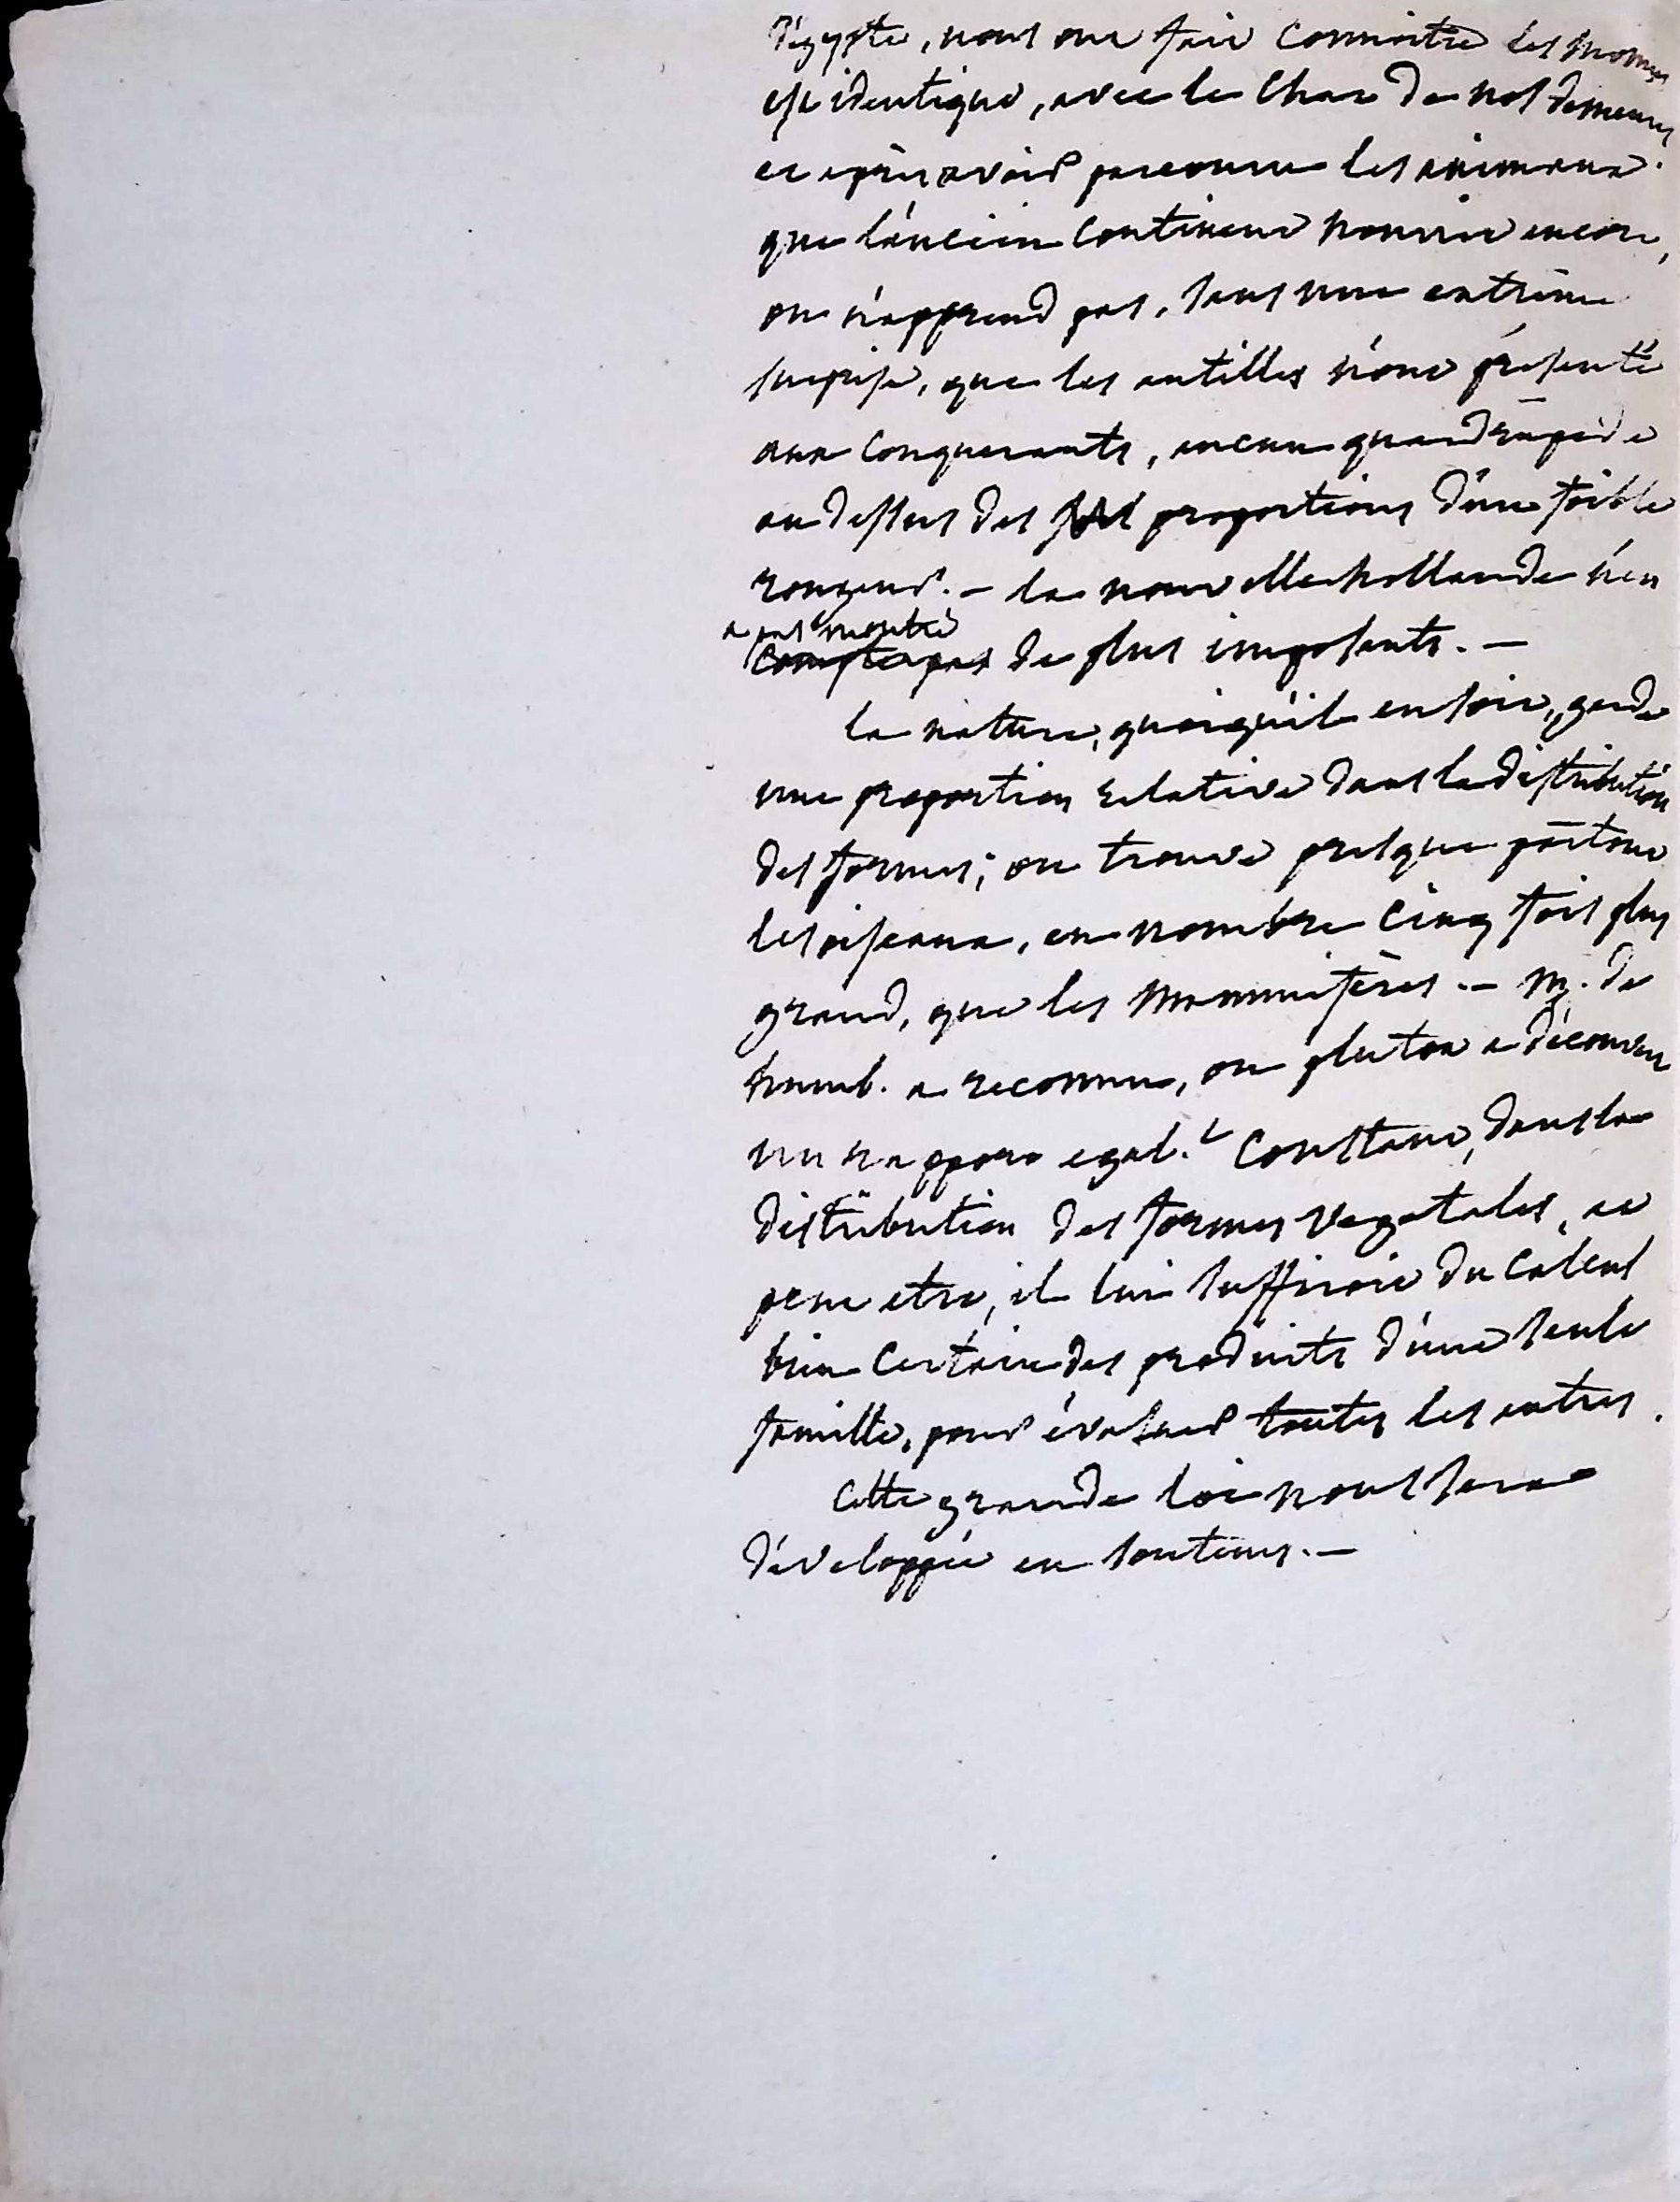 d'egypte, nous ont fait connoitre les momies
est identique, avec le chat de nos demeures
et après avoir parcouru les animaux
que l'ancien continent nourrit encore,
on n'apprend pas, sans une extrême
surprise, que les antilles n'ont présenté
aux conquerants, aucun quadrupède
au dessus des proportions d'un foible
rongeur. – la nouvelle hollande n'en
a pas montré
compte pas de plus imposants. –
la nature, quoiqu'il en soit, garde
une proportion relative dans la distribution
des formes; on trouve presque partout
les oiseaux, en nombre cinq fois plus
grand, que les mammifères. – M. de
humb. a reconnu, ou plutot a découvert
un rapport egal.t constant, dans la
distribution des formes vegetales, et
peut etre, il lui suffiroit du calcul
bien certain des produits d'une seule
famille, pour évaluer toutes les autres.
cette grande loi nous sera
développée en son tems. –